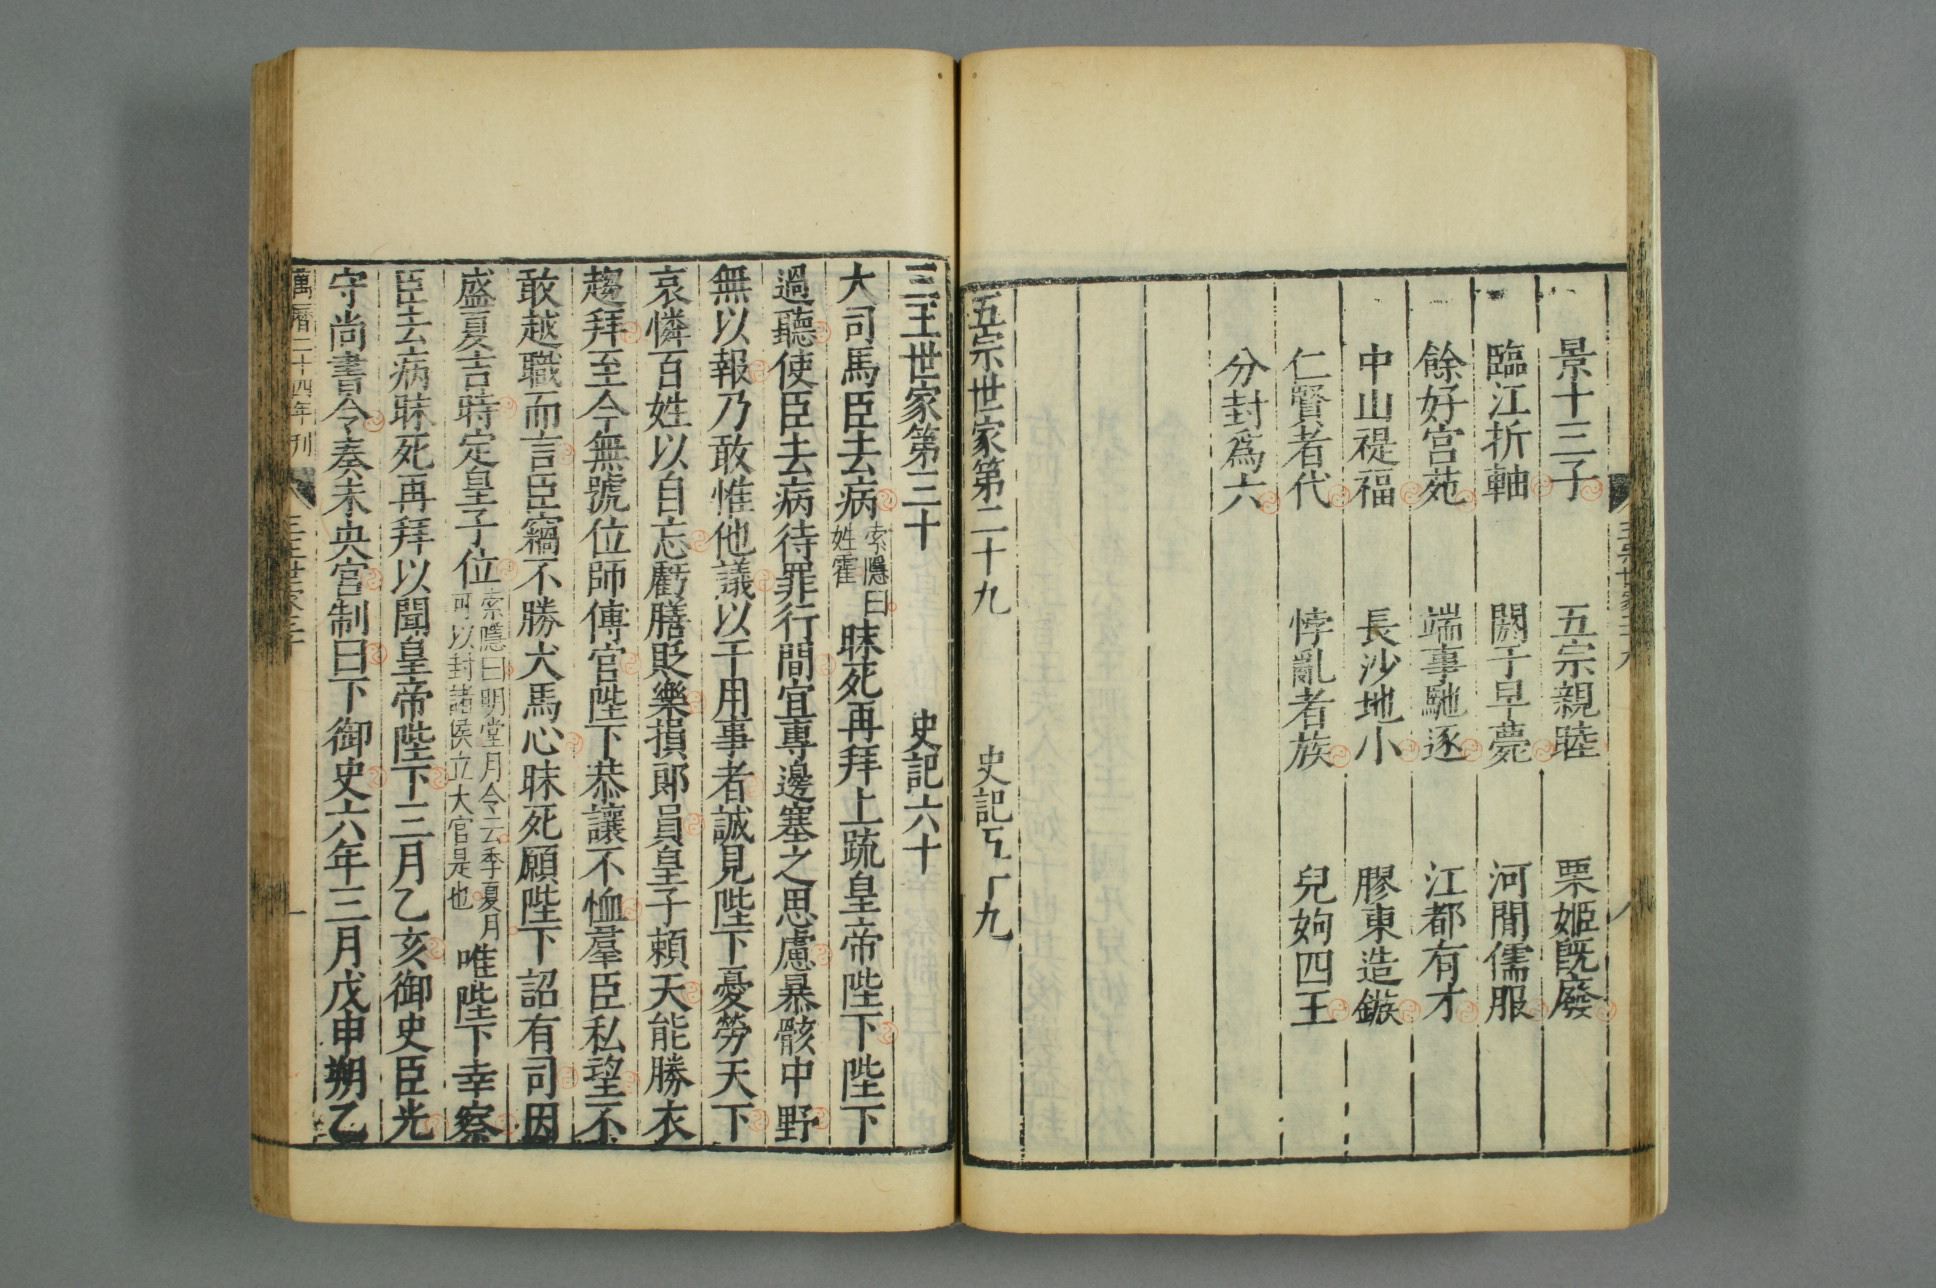 景十三子　五宗親睦　栗姬旣廢
臨江折軸　閼于早薨　河間儒服
餘好宫苑　端事馳逐　江都有才
中山禔福　長沙地小　膠東造鏃
仁賢者代　悖亂者族　兒姁四王
分封爲六
五宗世家第二十九　史記五十九
三王世家第三十　史記六十
大司馬臣去病索隱曰姓霍昧死再拜上疏皇帝陛下陛下
過聽使臣去病待罪行間宜專邊塞之思慮暴骸中野
無以報乃敢惟他議以干用事者誠見陛下憂勞天下
哀憐百姓以自忘虧膳貶樂損郎員皇子賴天能勝衣
趨拜至今無號位師傅官陛下恭讓不恤羣臣私望不
敢越職而言臣竊不勝犬馬心昧死願陛下詔有司因
盛夏吉時定皇子位索隱曰明堂月令云季夏月可以封諸侯立大官是也唯陛下幸察
臣去病昧死再拜以聞皇帝陛下三月乙亥御史臣光
守尚書令奏未央宫制曰下御史六年三月戊申朔乙
萬曆二十四年刊　三王世家三十　一